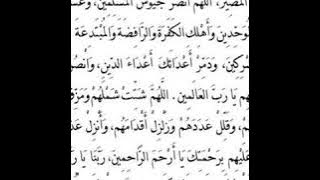 المصير، اللهم انصر جيوش المسلمين، وعس
وَحِدِينَ وَأَهْلِكِ الْكَفَرَةَ وَالرَّافِضَةَ وَالْمُبْتَدِعَةَ
شْرِكِينَ، وَدَمِّرْ أَعْدَائَكَ أَعْدَاءَ الدِّينِ، وَانْصُرْ
هِم يَا رَبَّ الْعَالَمِينَ. اللَّهُمَّ شَتِّتْ شَمْلَهُمْ وَمَزِّقْ
، وَقَلِّلْ عَدَدَهُمْ وَزَلْزِلْ أَقْدَامَهُم، وَأَنْزِل عَذَ
عَلَيهِم بِرَحْمَتِكَ يَا أَرْحَمَ الرَّاحِمِينَ، رَبَّنَا يَا رَ